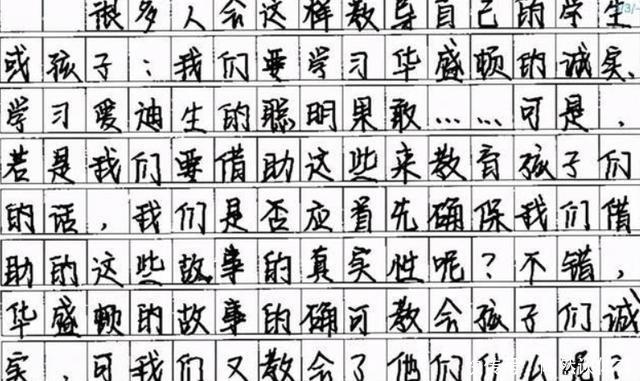 很多人会这样教导自己的学生
或孩子：我们要学习华盛顿的诚实、
学习爱迪生的聪明果敢……可是，
若是我们要借助这些来教育孩子们
的话，我们是否应首先确保我们借
助的这些故事的真实性呢？不错，
华盛顿的故事的确可教会孩子们诚
实，可我们又教会了他们什么呢？